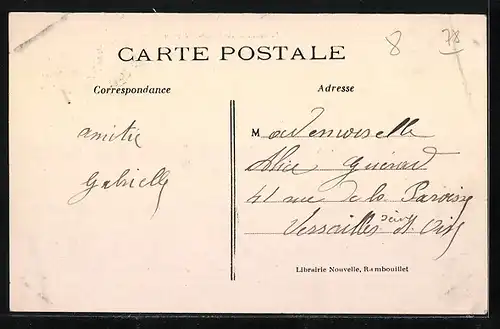 8 78
CARTE POSTALE
Correspondance
Adresse
amitié
Gabrielle
Mademoiselle
Alice Guérard
41 rue de la Paroisse
Versailles Seine et Oise
Librairie Nouvelle, Rambouillet